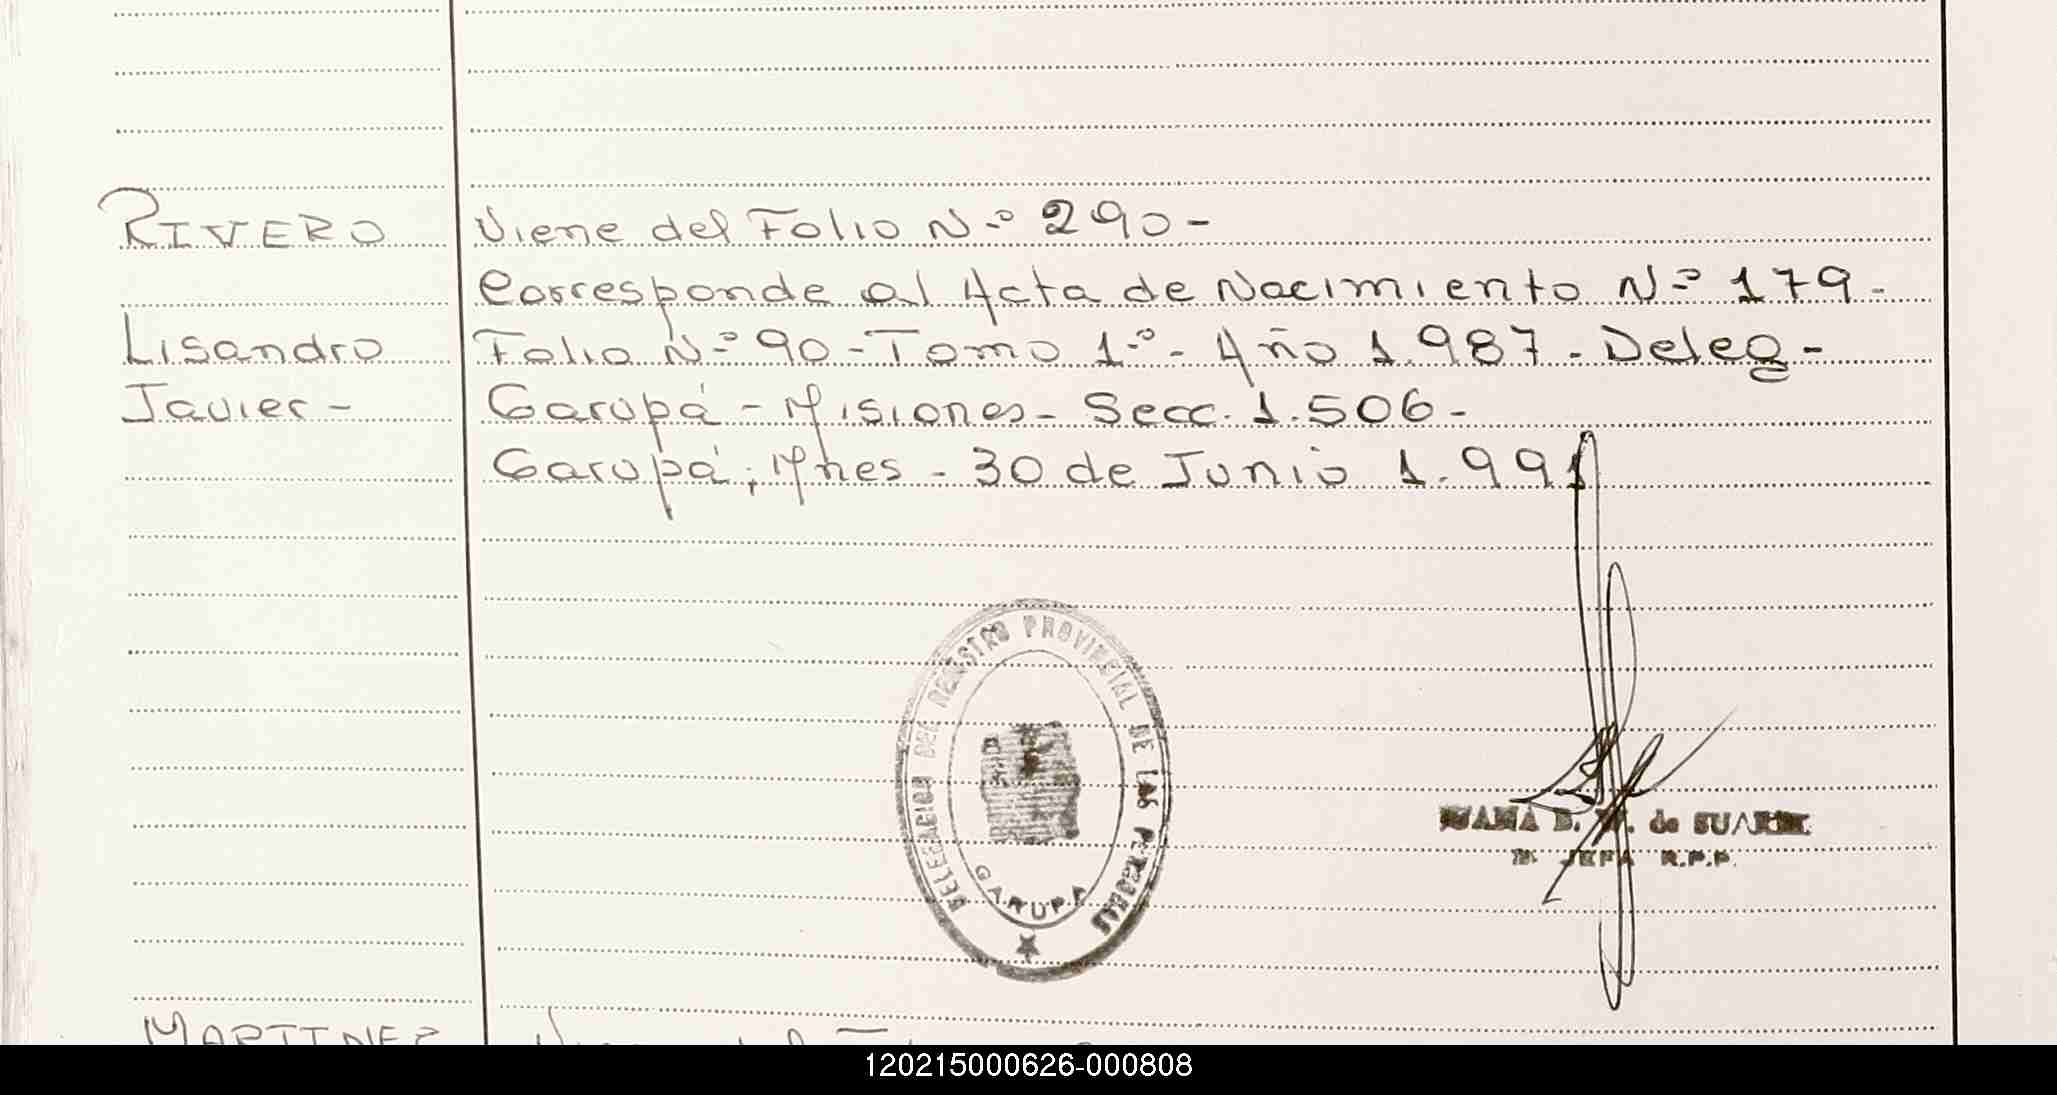 RIVERO Viene del Folio N.º 290 -
Corresponde al Acta de Nacimiento N.º 179 -
Lisandro Folio N.º 90 - Tomo 1.º - Año 1.987 - Deleg -
Javier - Garupá - Misiones - Secc. 1.506 -
Garupá, Mnes - 30 de Junio 1.991
DELEGACION DEL REGISTRO PROVINCIAL DE LAS PERSONAS
GARUPA
JUANA B. de SUAREZ
JEFA R.P.P.
MARTINEZ
120215000626-000808